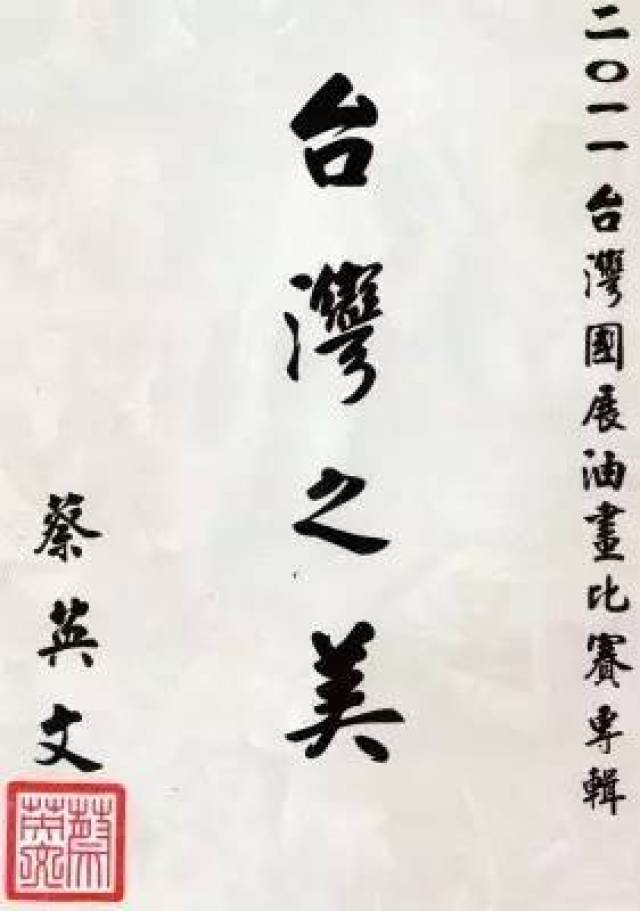 二〇一一台灣國展油畫比賽專輯
台灣之美
蔡英文
蔡英文